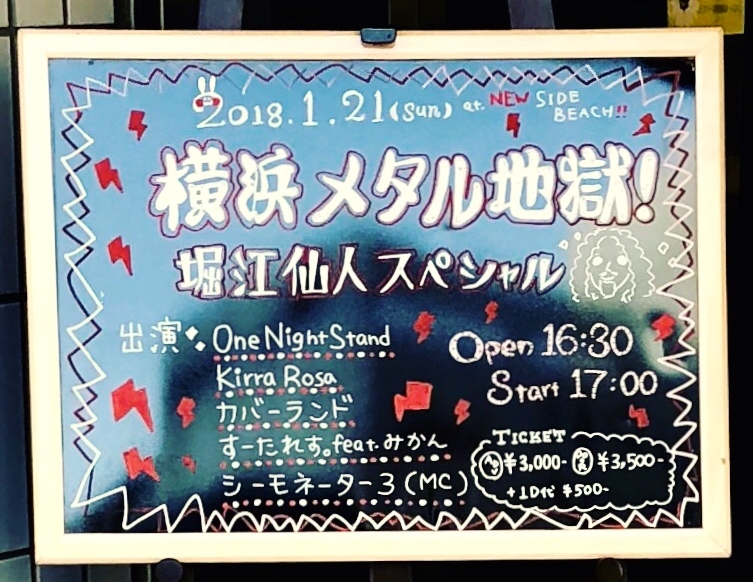 2018.1.21(Sun) at. NEW SIDE BEACH!!
横浜メタル地獄!
堀江仙人スペシャル
出演:
One Night Stand
Kirra Rosa
カバーランド
すーたれす。feat.みかん
シーモネーター3(MC)
Open 16:30
Start 17:00
TICKET
¥3,000- ¥3,500-
+1D代 ¥500-